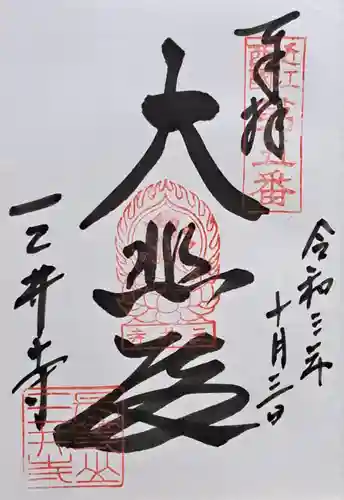 奉拝
近江
西国
第五番
令和三年
十月三日
大悲殿
三井寺